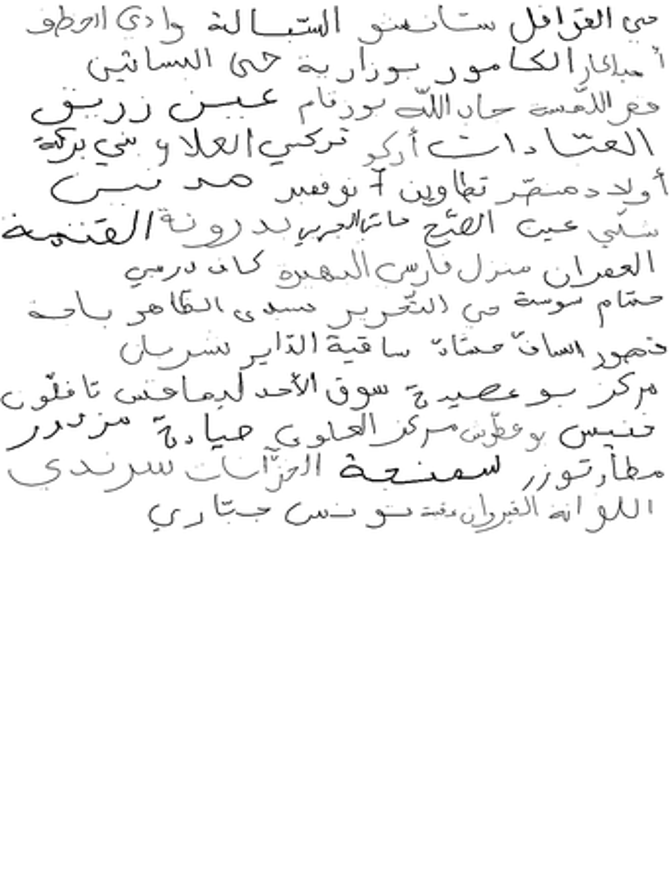 حي القوافل ستانسنو السّبالة وادي الخطف
الكامور بوزارية حي البساتين
جاب اللّه بورقام عين زريق
العتادات أركو تركي العلا و بني بركة
أولاد منصّر تطاوين 7 نوفمبر
شلّي عين الصّبح بدرونة القنيمة
العمران منزل فارس البهيرة كاف درمبي
حمّام سوسة حي التّحرير سيدي الظاهر باجة
قصور السافّ حشّاد ساقية الدّاير
مركز بوعصيدة سوق الأحد ليماخس تافلّون
خنيس بوعطّوش مركز العلوي صيادة مزدور
مطار توزر سمنجة الخزّانات سرندي
اللواتة القيروان تونس جبّاري